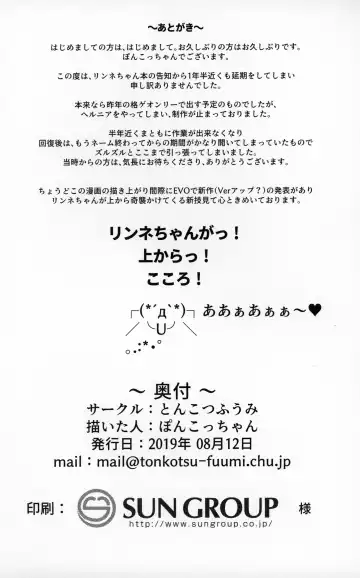 ～あとがき～
はじめましての方は、はじめまして。お久しぶりの方はお久しぶりです。
ぽんこっちゃんでございます。
この度は、リンネちゃん本の告知から1年半近くも延期をしてしまい
申し訳ありませんでした。
本来なら昨年の格ゲオンリーで出す予定のものでしたが、
ヘルニアをやってしまい、制作が止まっておりました。
半年近くまともに作業が出来なくなり
回復後は、もうネーム終わってからの期間がかなり開いてしまっていたもので
ズルズルとここまで引っ張ってしまいました。
当時からの方は、気長にお待ちくださり、ありがとうございます。
ちょうどこの漫画の描き上がり間際にEVOで新作(Verアップ？)の発表があり
リンネちゃんが上から奇襲かけてくる新技見て心ときめいております。
リンネちゃんがっ！
上からっ！
こころ！
┌(*´д`*)┐ああぁあぁぁ～♥
／╰U╯＼
｡.:*･ﾟ
～ 奥付 ～
サークル：とんこつふうみ
描いた人：ぽんこっちゃん
発行日：2019年 08月12日
mail：mail@tonkotsu-fuumi.chu.jp
印刷： SUN GROUP 様
http://www.sungroup.co.jp/